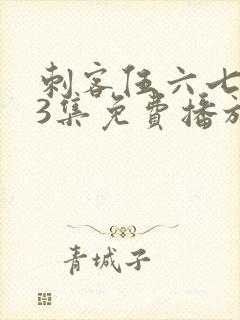 刺客伍六七
3集免費播放
青城子